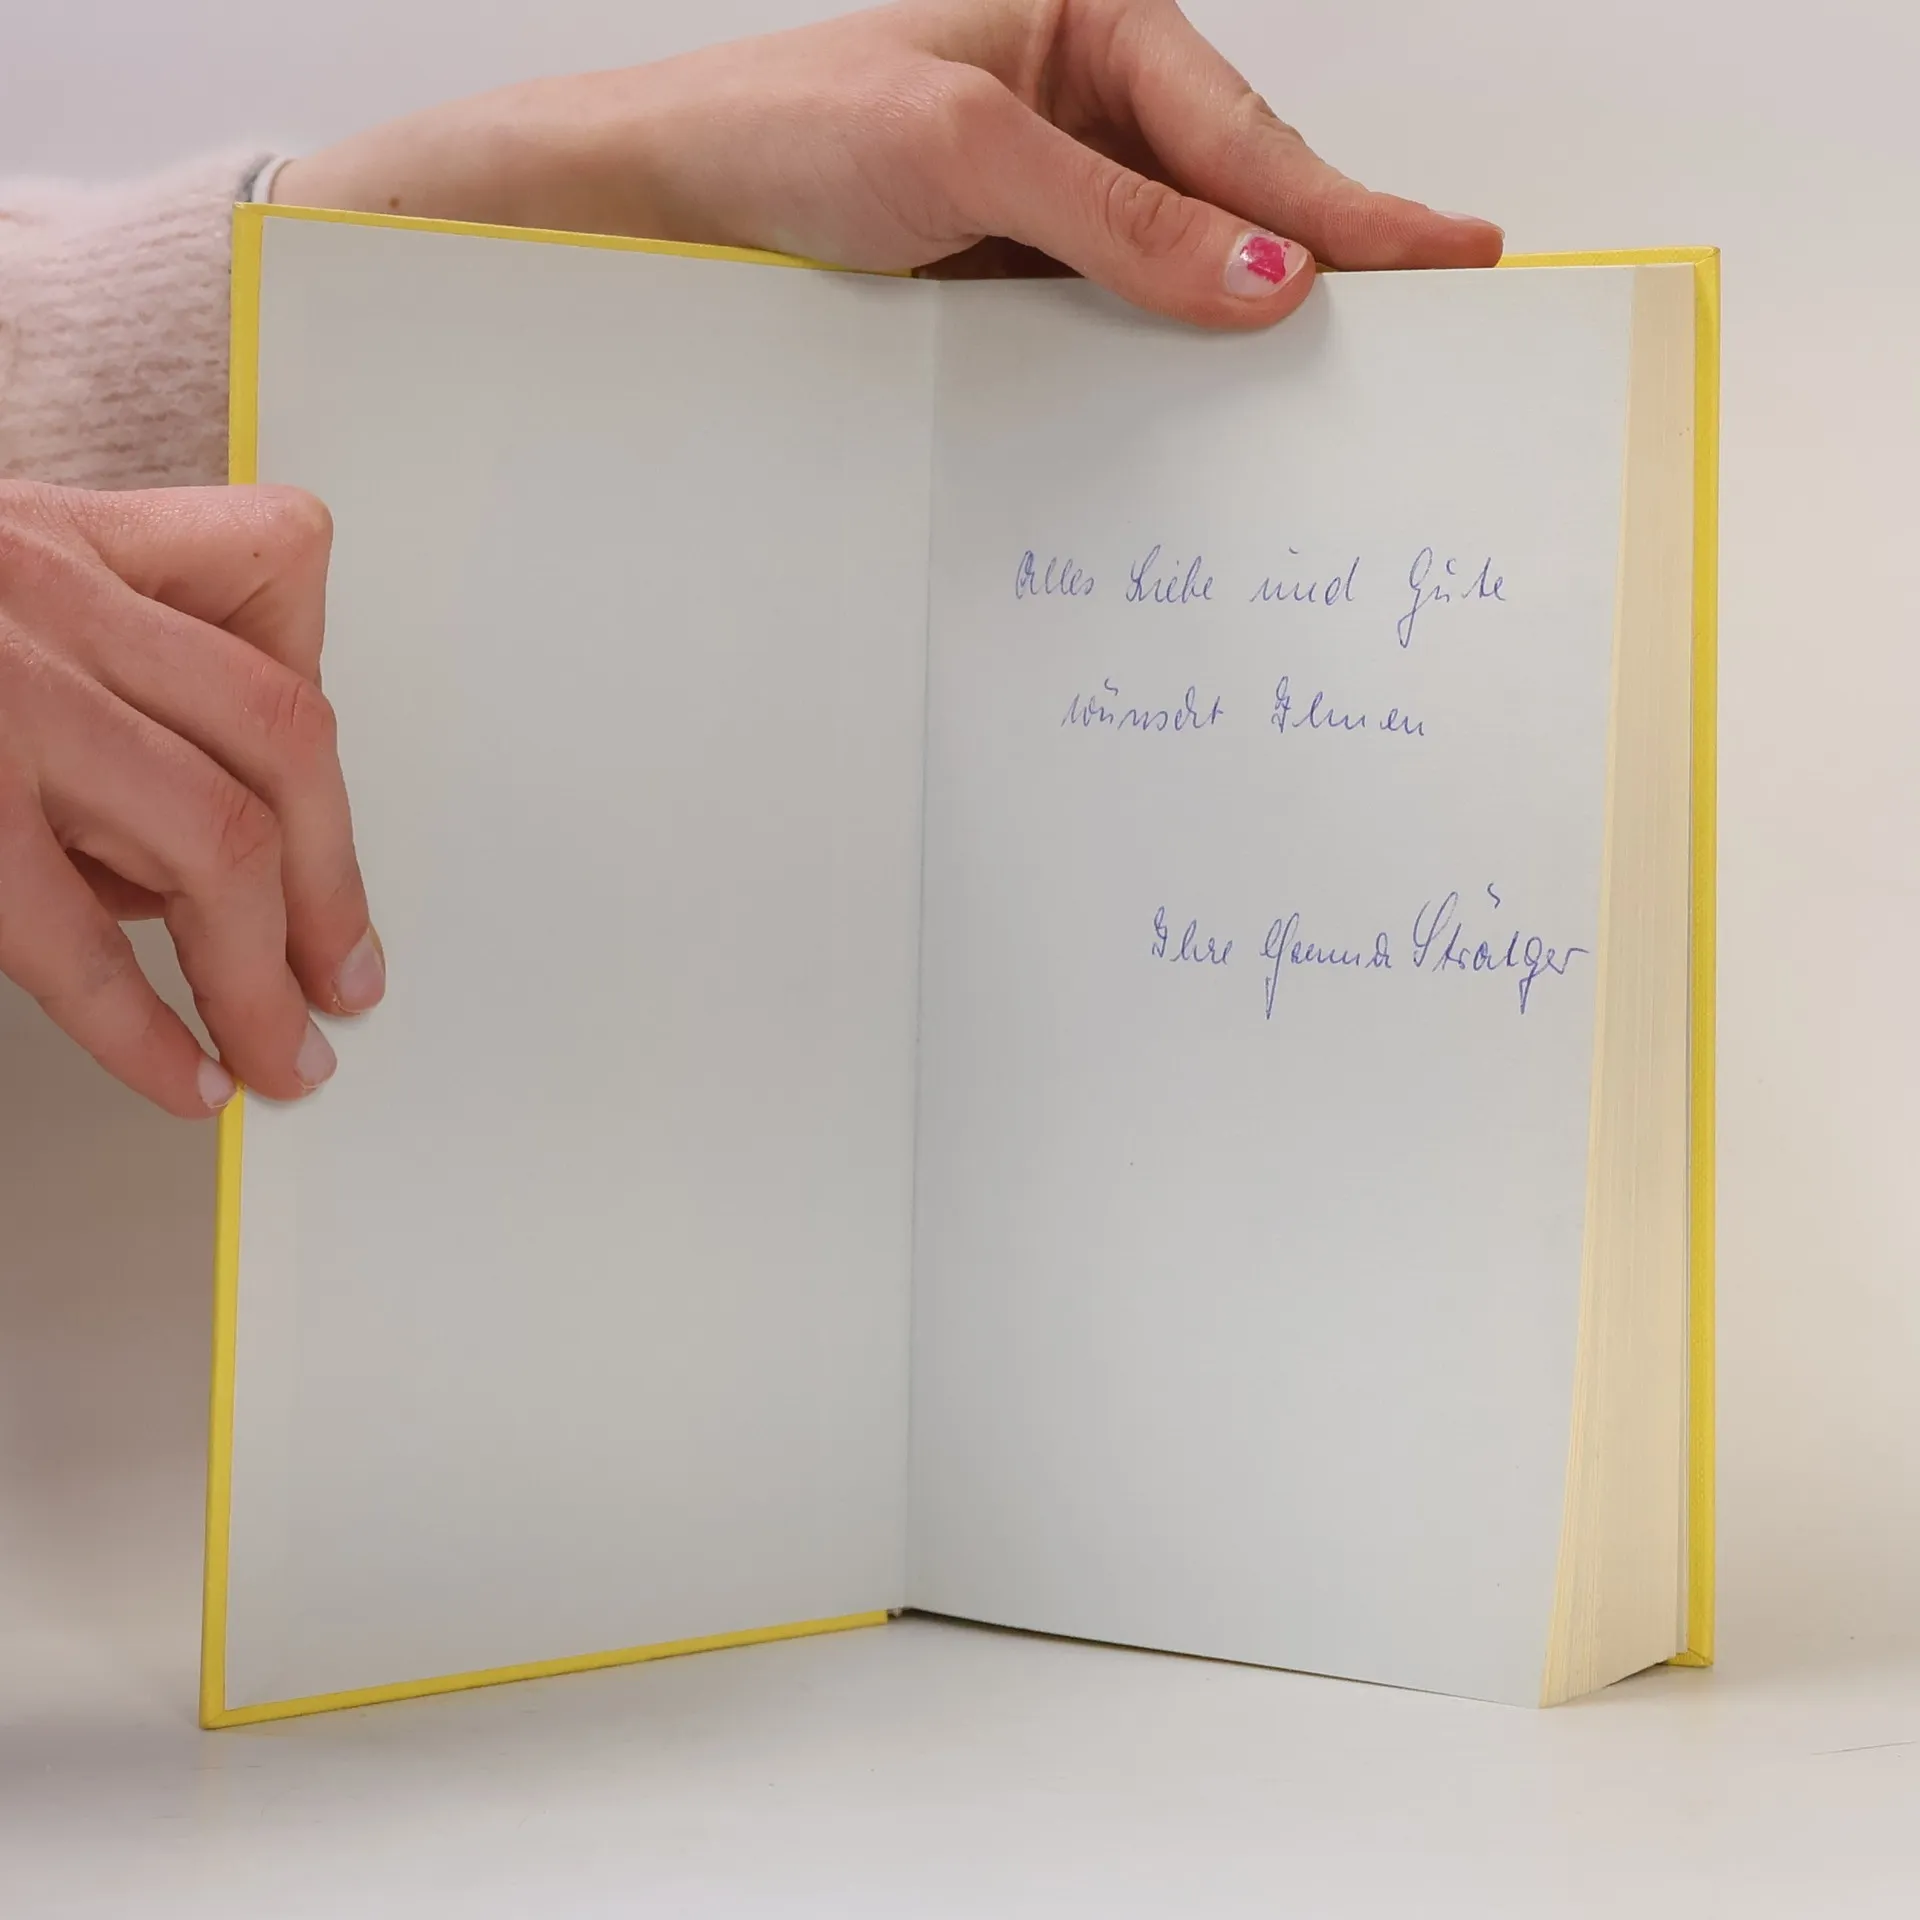 Alles Liebe und Gute
wünscht Ihnen
Ihre Strätger